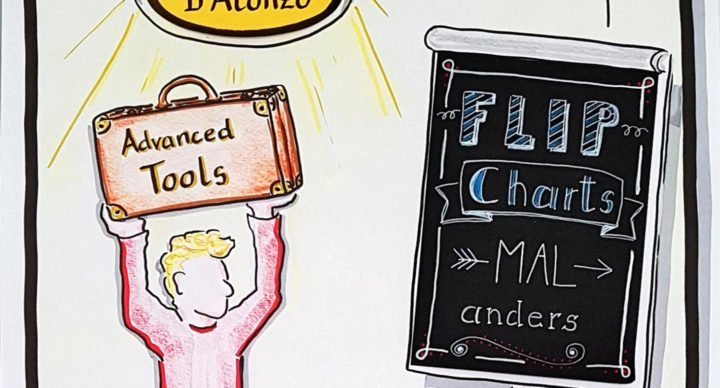 D'Alonzo
Advanced
Tools
FLIP
Charts
MAL
anders